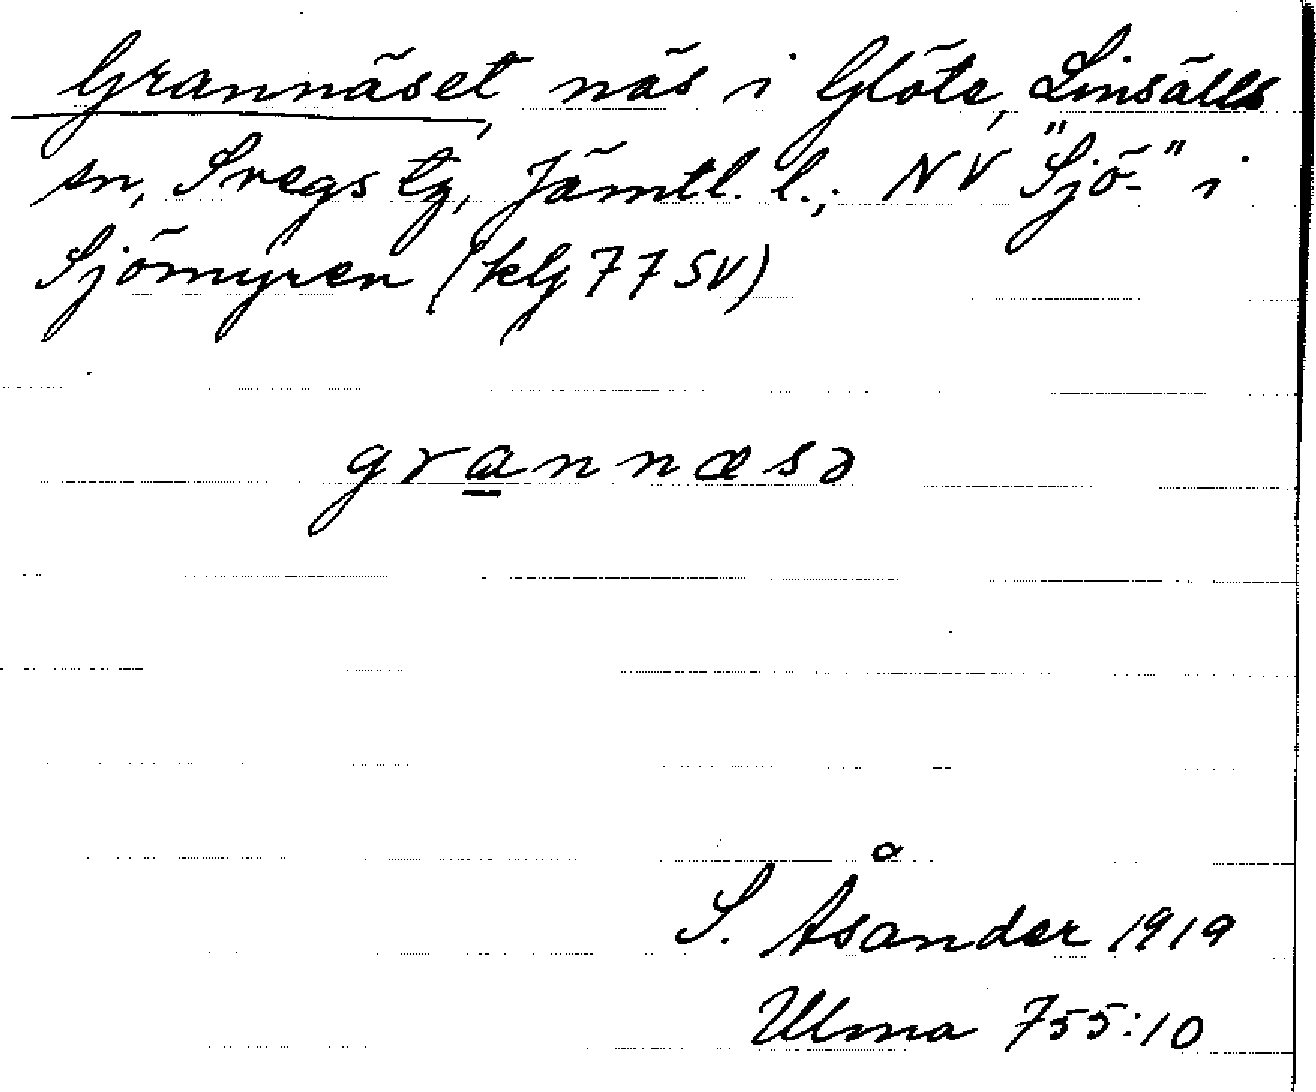 Grannäset, näs i Glöte, Linsälls
sn, Svegs tg, Jämtl. l.; NV "Sjö-" i
Sjömyren (kbl 77 SV)
grannæsə
S. Åsander 1919
Ulma 755:10